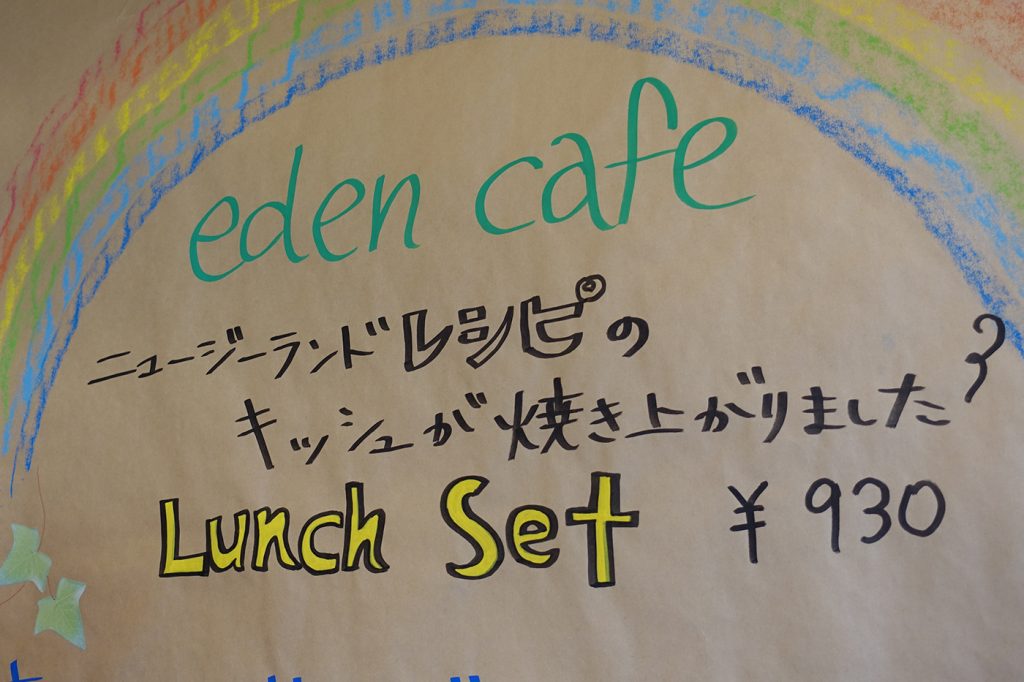 eden cafe
ニュージーランドレシピの
キッシュが焼き上がりました
Lunch Set ¥930